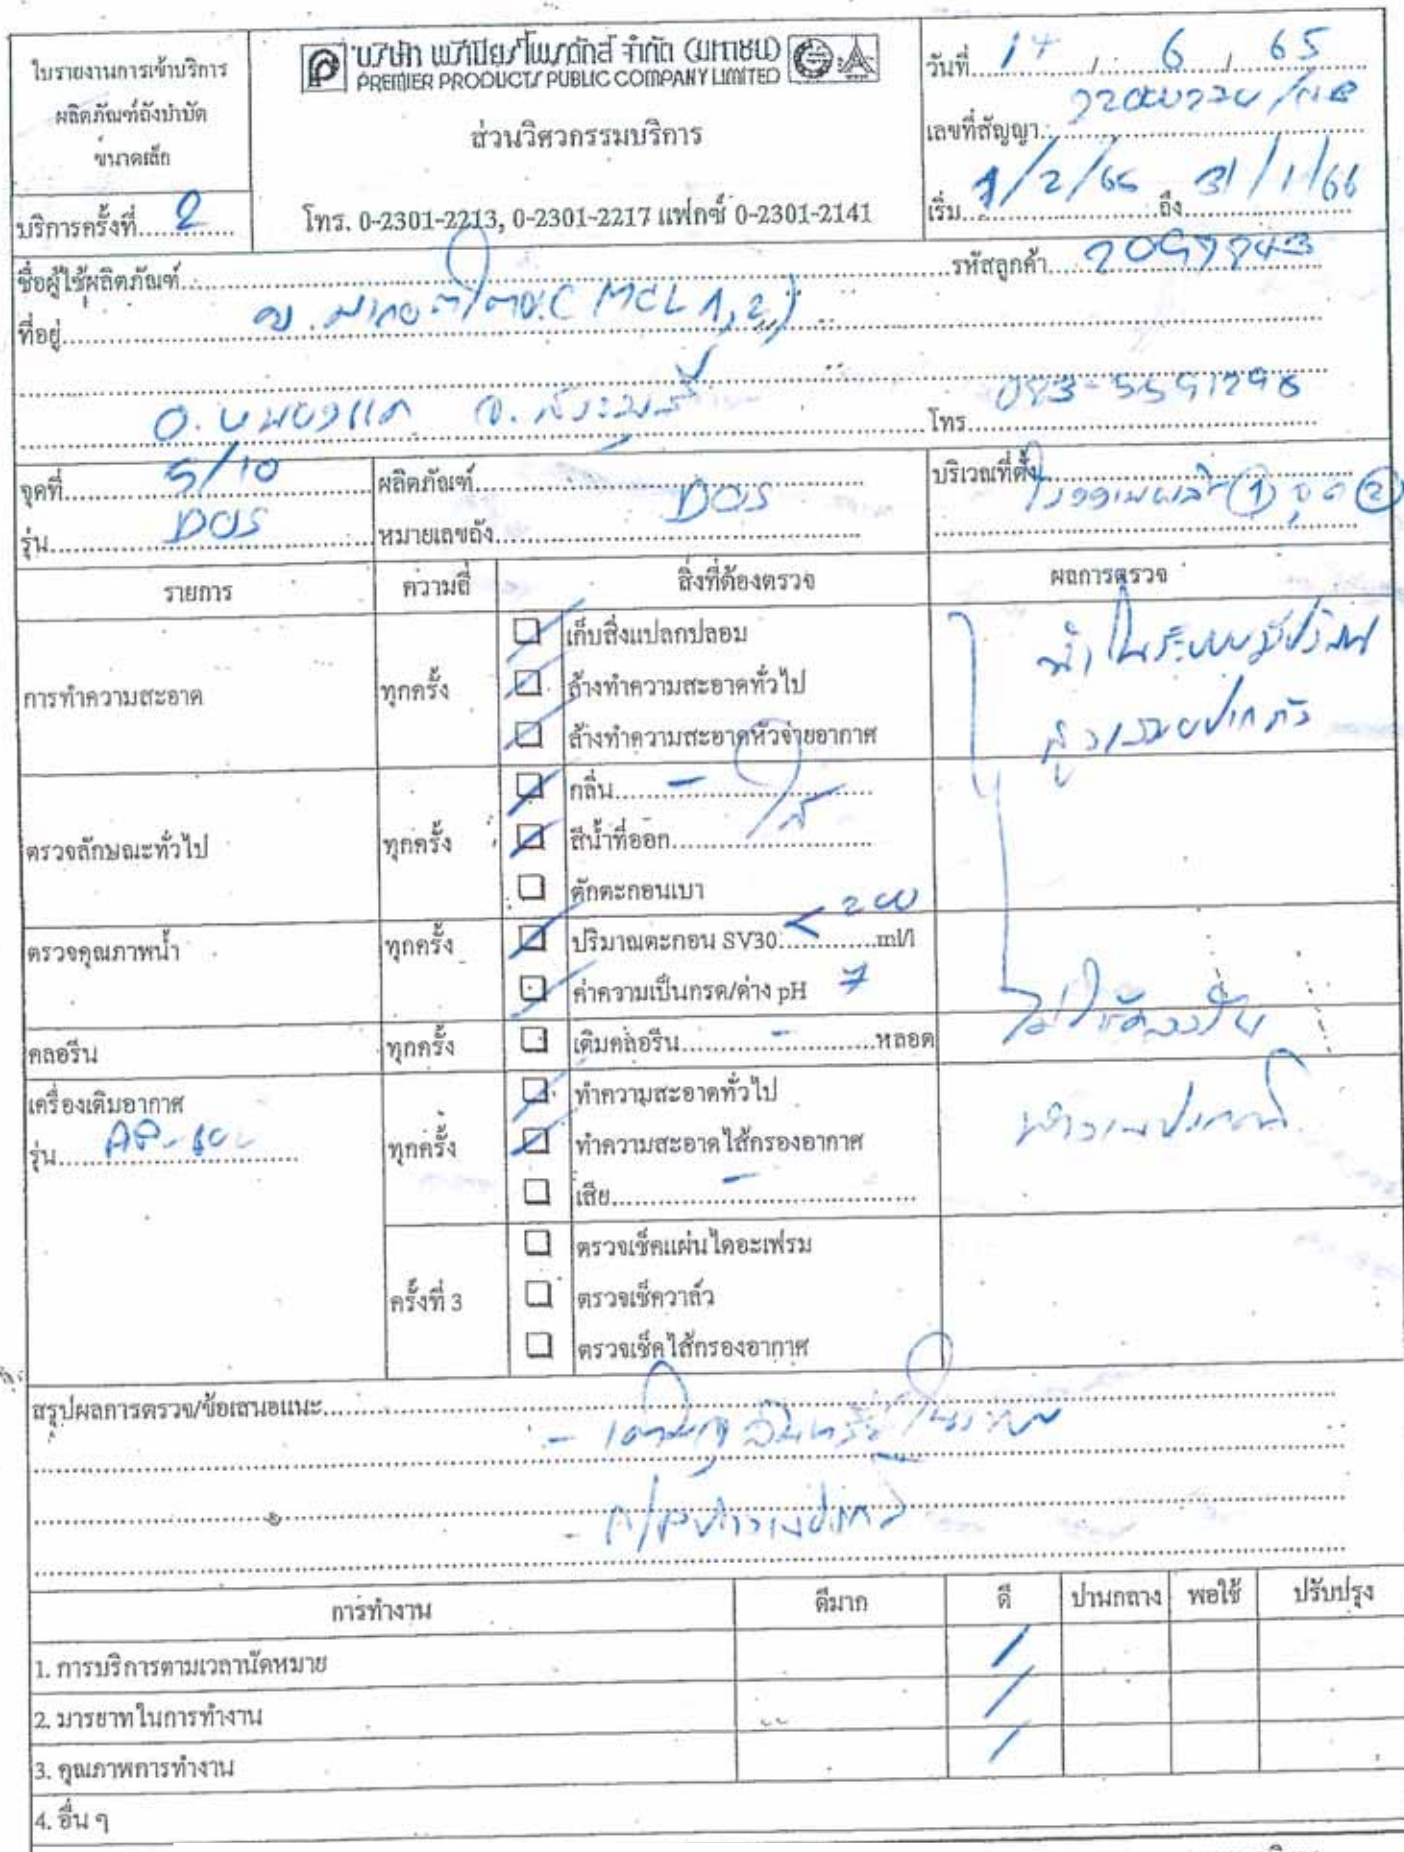 ใบรายงานการเข้าบริการ
ผลิตภัณฑ์ถังบำบัด
ขนาดเล็ก
บริการครั้งที่ 2
บริษัท พรีเมียร์โพรดักส์ จำกัด (มหาชน)
PREMIER PRODUCTS PUBLIC COMPANY LIMITED
ส่วนวิศวกรรมบริการ
โทร. 0-2301-2213, 0-2301-2217 แฟกซ์ 0-2301-2141
วันที่ 14 / 6 / 65
เลขที่สัญญา
เริ่ม 1/2/65 ถึง 31/1/66
ชื่อผู้ใช้ผลิตภัณฑ์ รหัสลูกค้า
ที่อยู่ (MCL 1,2)
อ.หนองแค จ.สระบุรี โทร 083-5591296
จุดที่ 5/10 ผลิตภัณฑ์ DOS บริเวณที่ตั้ง
รุ่น DOS หมายเลขถัง
รายการ ความถี่ สิ่งที่ต้องตรวจ ผลการตรวจ
การทำความสะอาด ทุกครั้ง
เก็บสิ่งแปลกปลอม
ล้างทำความสะอาดทั่วไป
ล้างทำความสะอาดหัวจ่ายอากาศ
น้ำในระบบมีปริมาณ
ตรวจลักษณะทั่วไป ทุกครั้ง
กลิ่น -
สีน้ำที่ออก ใส
ตักตะกอนเบา
ตรวจคุณภาพน้ำ ทุกครั้ง
ปริมาณตะกอน SV30 < 200 ml/l
ค่าความเป็นกรด/ด่าง pH 7
คลอรีน ทุกครั้ง เติมคลอรีน - หลอด
ไม่ใช้คลอรีน
เครื่องเติมอากาศ
รุ่น
ทุกครั้ง
ทำความสะอาดทั่วไป
ทำความสะอาดไส้กรองอากาศ
เสีย -
ทำงานปกติ
ครั้งที่ 3
ตรวจเช็คแผ่นไดอะเฟรม
ตรวจเช็ควาล์ว
ตรวจเช็คไส้กรองอากาศ
สรุปผลการตรวจ/ข้อเสนอแนะ
- เติมจุลินทรีย์ในระบบ
- A/P ทำงานปกติ
การทำงาน ดีมาก ดี ปานกลาง พอใช้ ปรับปรุง
1. การบริการตามเวลานัดหมาย /
2. มารยาทในการทำงาน /
3. คุณภาพการทำงาน /
4. อื่น ๆ